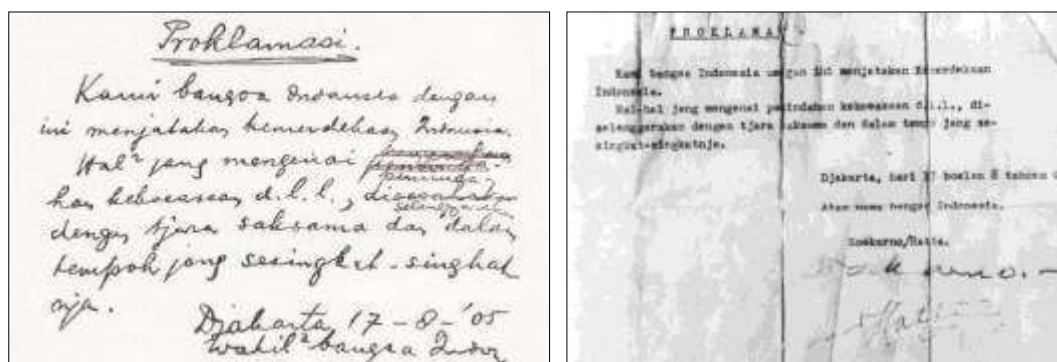 Proklamasi.
Kami bangsa Indonesia dengan
ini menjatakan kemerdekaan Indonesia.
Hal² jang mengenai
peminda-
han kekoeasaan d.l.l.,
diselenggarakan
dengan tjara saksama dan dalam
tempoh jang sesingkat-singkat
nja.
Djakarta, 17-8-'05
Wakil² bangsa Indon
P R O K L A M A S I
Kami bangsa Indonesia dengan ini menjatakan Kemerdekaan
Indonesia.
Hal-hal jang mengenai pemindahan kekoeasaan d.l.l., di-
selenggarakan dengan tjara saksama dan dalam tempo jang se-
singkat-singkatnja.
Djakarta, hari 17 boelan 8 tahoen 0
Atas nama bangsa Indonesia.
Soekarno/Hatta.
Soekarno.
Hatta